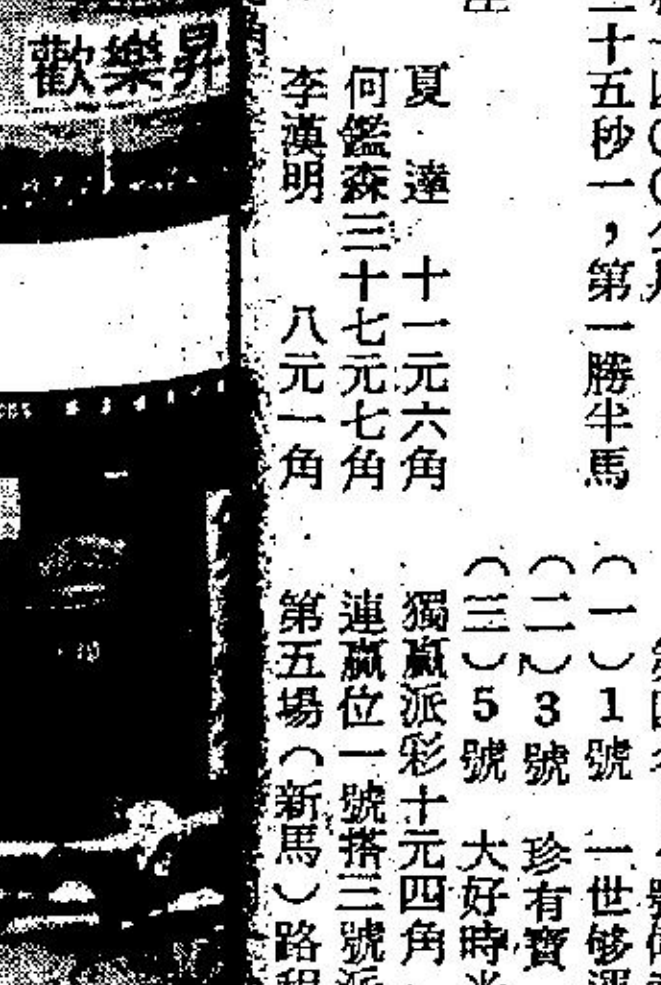 二十五秒一，第一勝半馬
夏　達　十一元六角
何鑑森三十七元七角
李漢明　　八元一角
（一）1號　一世够運
（二）3號　珍有寶
（三）5號　大好時光
獨贏派彩十元四角
連贏位一號搭三號派
第五場（新馬）路程
歡樂昇